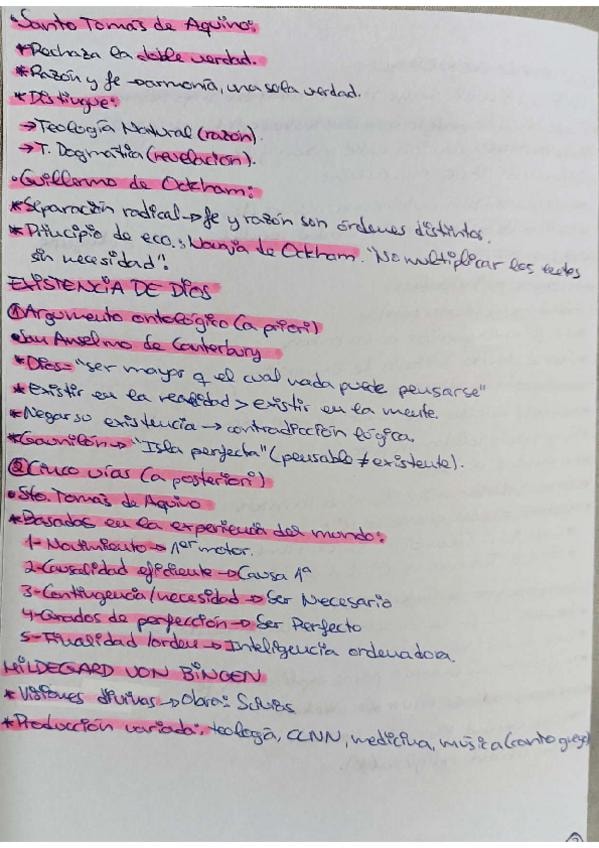 •Santo Tomás de Aquino:
*Rechaza la doble verdad.
*Razón y fe → armonía, una sola verdad.
*Distingue:
→Teología Natural (razón).
→T. Dogmática (revelación).
•Guillermo de Ockham:
*Separación radical → fe y razón son órdenes distintos.
*Principio de eco.: Navaja de Ockham. "No multiplicar los entes
sin necesidad".
EXISTENCIA DE DIOS
①Argumento ontológico (a priori)
•San Anselmo de Canterbury
*Dios= "ser mayor q el cual nada puede pensarse"
*Existir en la realidad > existir en la mente.
*Negar su existencia → contradicción lógica.
*Gaunilón → "Isla perfecta" (pensable ≠ existente).
②Cinco vías (a posteriori)
•Sto. Tomás de Aquino
*Basadas en la experiencia del mundo:
1- Movimiento → 1er motor.
2-Causalidad eficiente → Causa 1ª
3-Contingencia/necesidad → Ser Necesario
4-Grados de perfección → Ser Perfecto
5-Finalidad/orden → Inteligencia ordenadora.
HILDEGARD VON BINGEN
*Visiones divinas → Obra: Scivias
*Producción variada: teología, CCNN, medicina, música (canto grego)